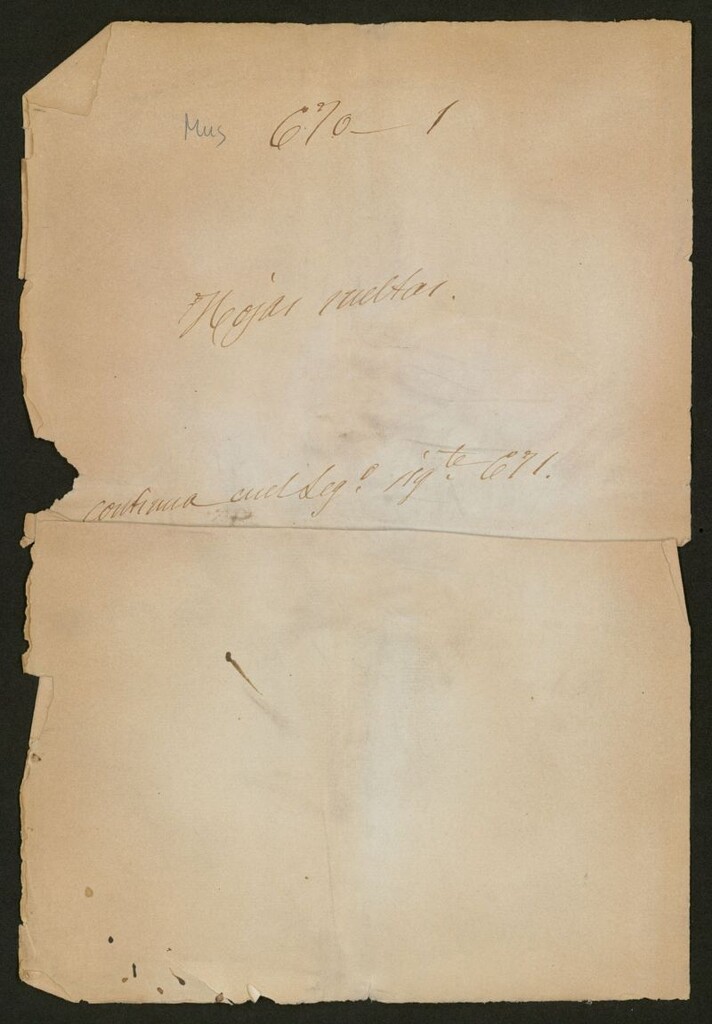 Mus 670 — 1
Hojas sueltas.
continua en el Leg.º sig.te 671.